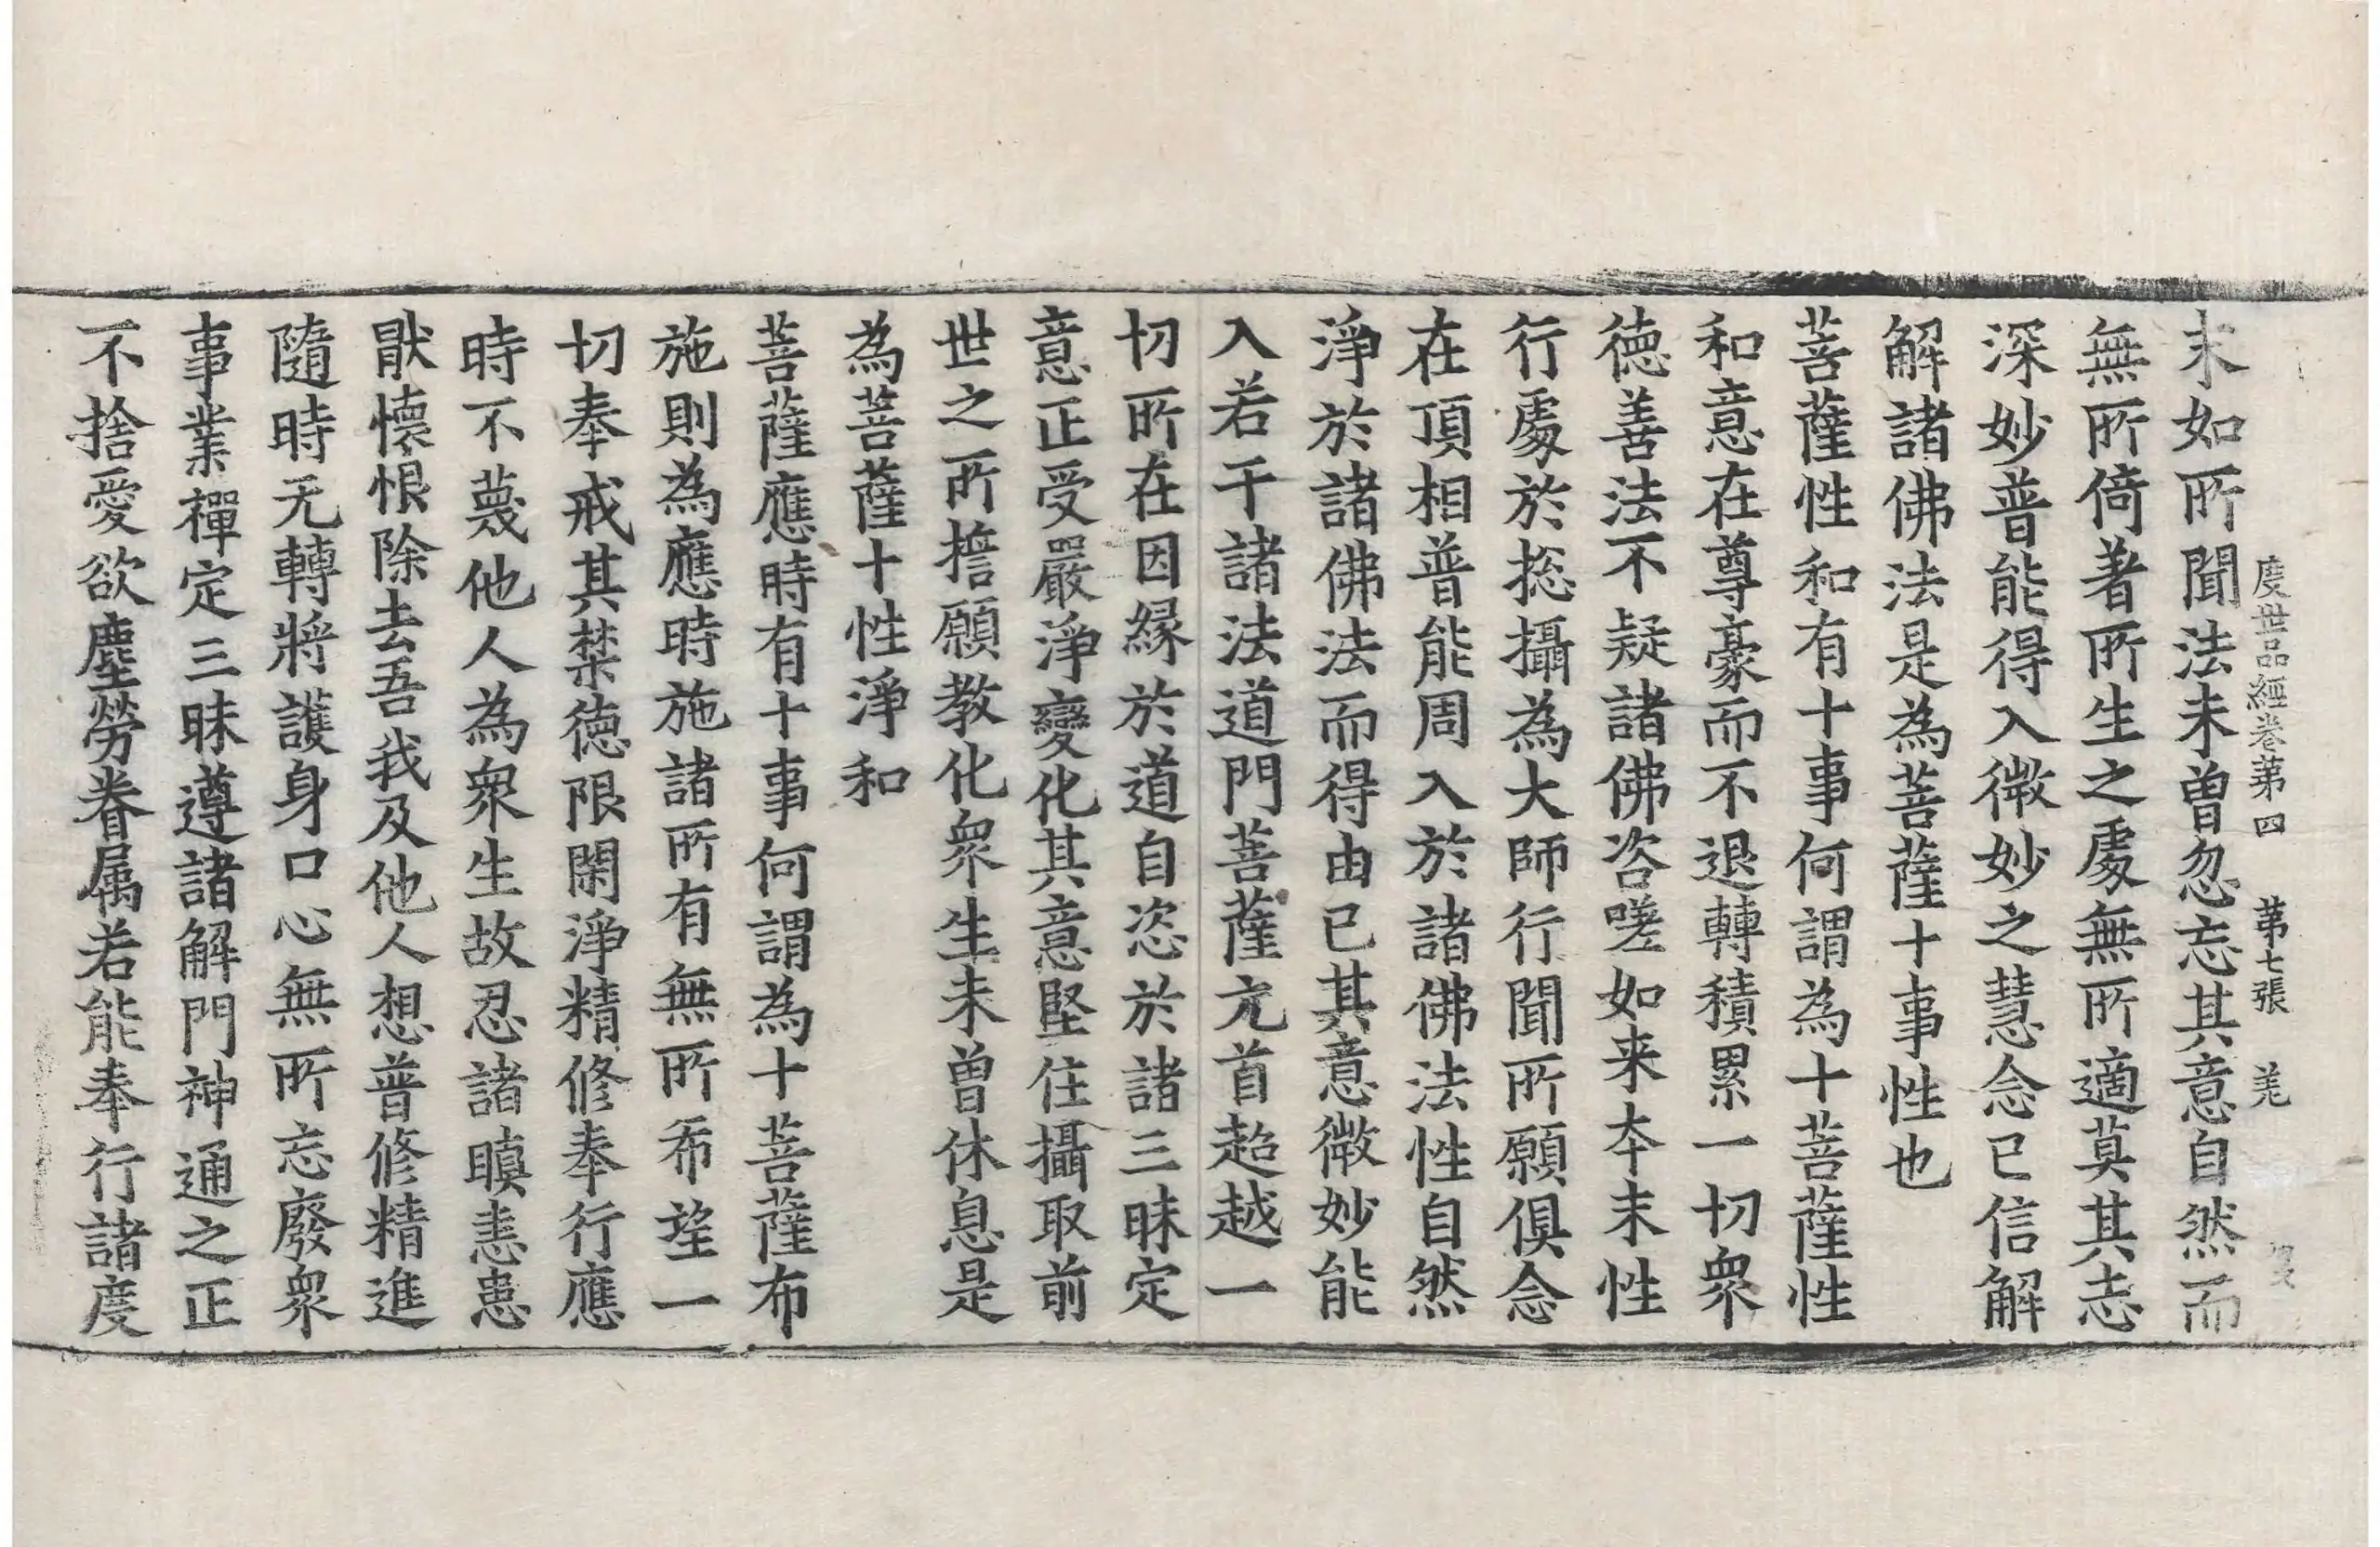 度世品經卷第四 第七張 羌
末如所聞法未曾忽忘其意自然而
無所倚著所生之處無所適莫其志
深妙普能得入微妙之慧念已信解
解諸佛法是為菩薩十事性也
菩薩性和有十事何謂為十菩薩性
和意在尊豪而不退轉積累一切衆
德善法不疑諸佛咨嗟如来夲末性
行處於揔攝為大師行聞所願俱念
在頂相普能周入於諸佛法性自然
淨於諸佛法而得由已其意微妙能
入若干諸法道門菩薩亢首超越一
切所在因緣於道自恣於諸三昧定
意正受嚴淨變化其意堅住攝取前
世之所誓願教化衆生未曽休息是
為菩薩十性淨和
菩薩應時有十事何謂為十菩薩布
施則為應時施諸所有無所希望一
切奉戒其禁德限閑淨精修奉行應
時不蔑他人為衆生故忍諸瞋恚患
猒懷恨除去吾我及他人想普修精進
隨時无轉將護身口心無所忘廢衆
事業禪定三昧遵諸解門神通之正
不捨愛欲塵勞眷属若能奉行諸度